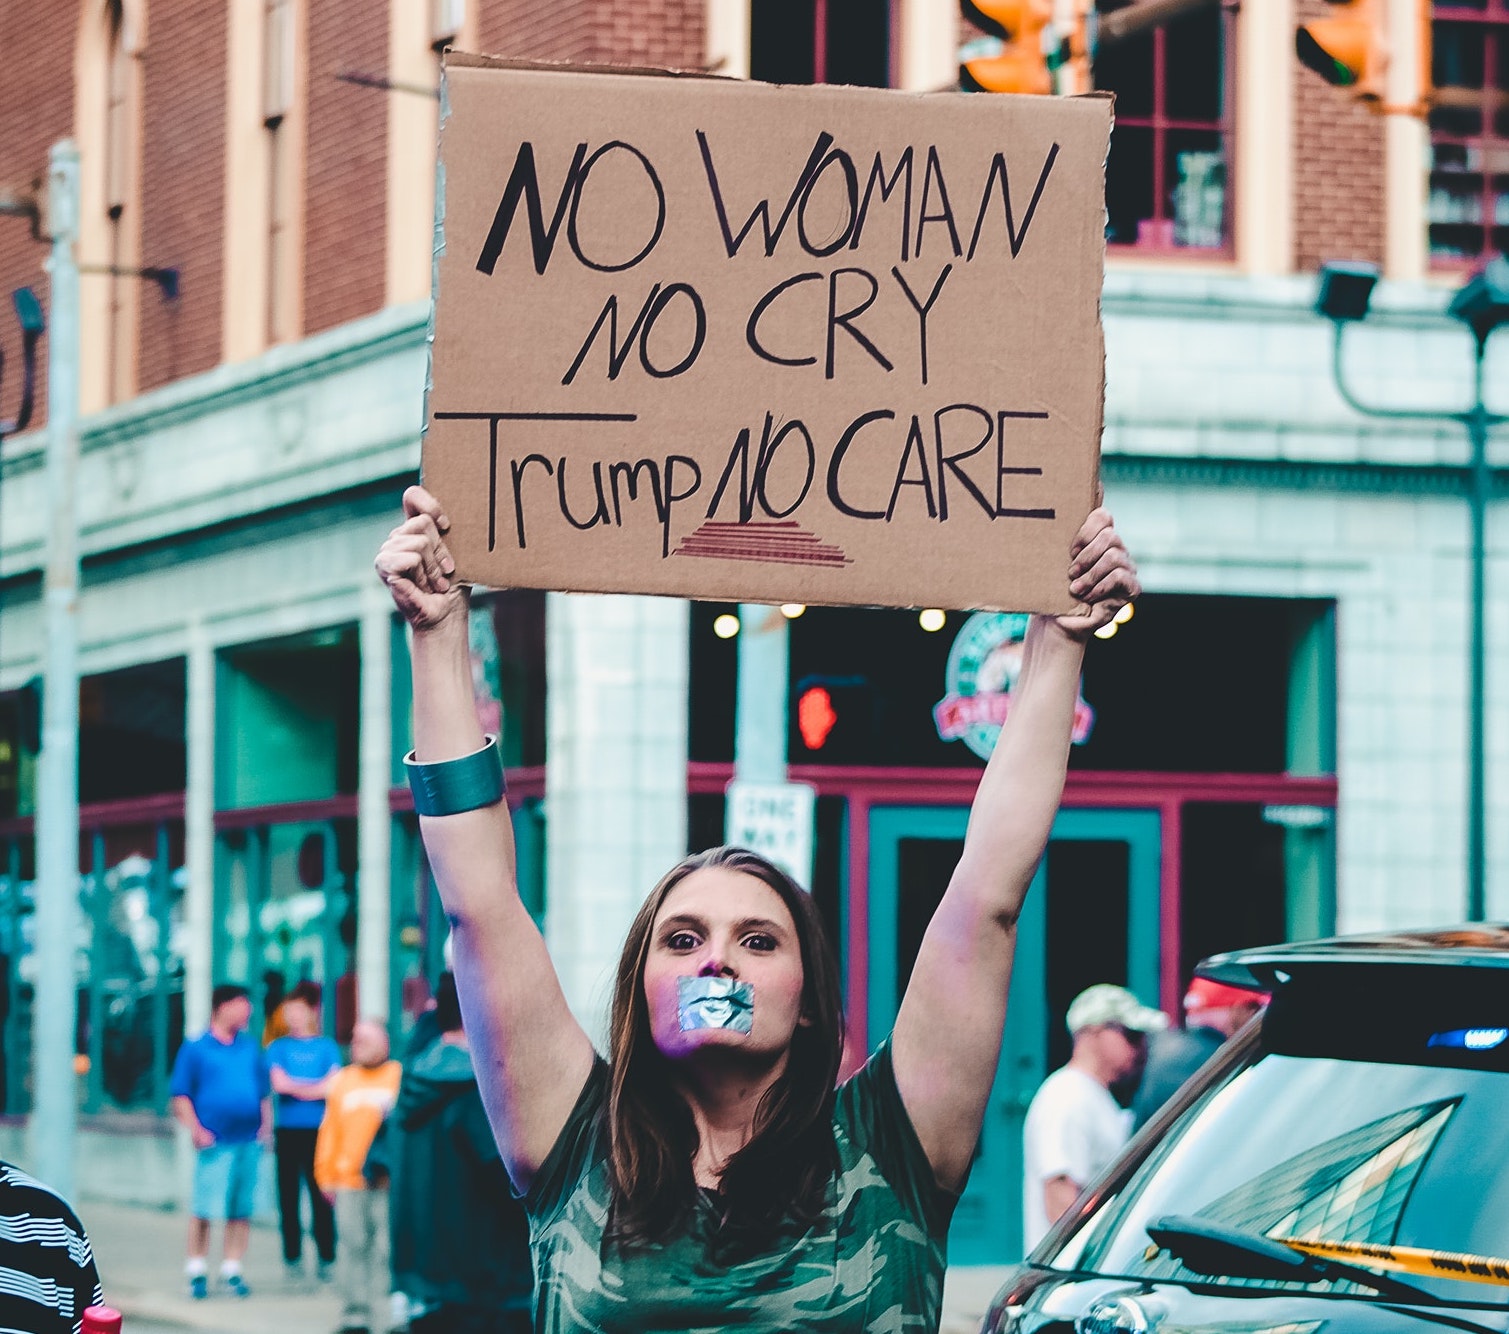 NO WOMAN
NO CRY
Trump NO CARE
ONE
WAY